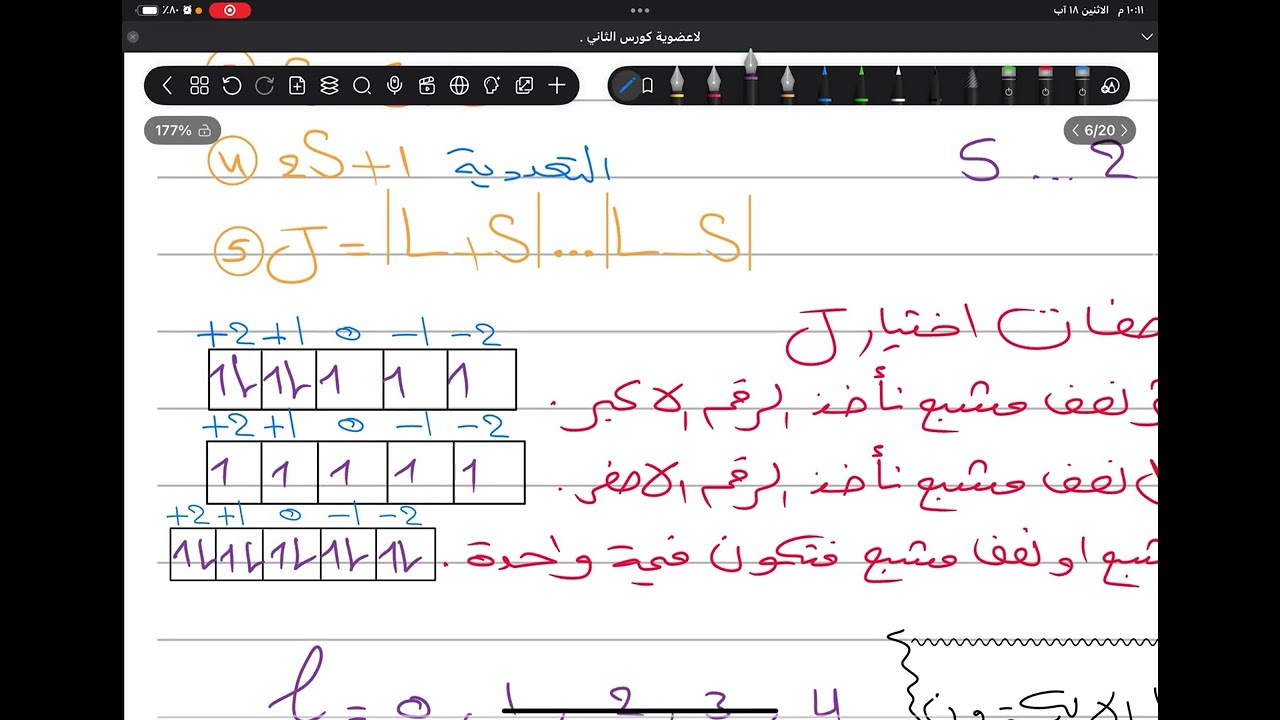 ١٠:١١ م الاثنين ١٨ آب
٪٨٠
لاعضوية كورس الثاني .
177%
6/20
④ 2S+1 التعددية
S ... 2
⑤ J = |L+S| ... |L-S|
صفات اختيار J
+2 +1 0 -1 -2
1L 1L 1 1 1
نصف مشبع نأخذ الرقم الاكبر .
+2 +1 0 -1 -2
1 1 1 1 1
نصف مشبع نأخذ الرقم الاصغر .
+2 +1 0 -1 -2
1L 1L 1L 1L 1L
مشبع او نصف مشبع فتكون قيمة واحدة .
l = 0 , 1 , 2 , 3 , 4